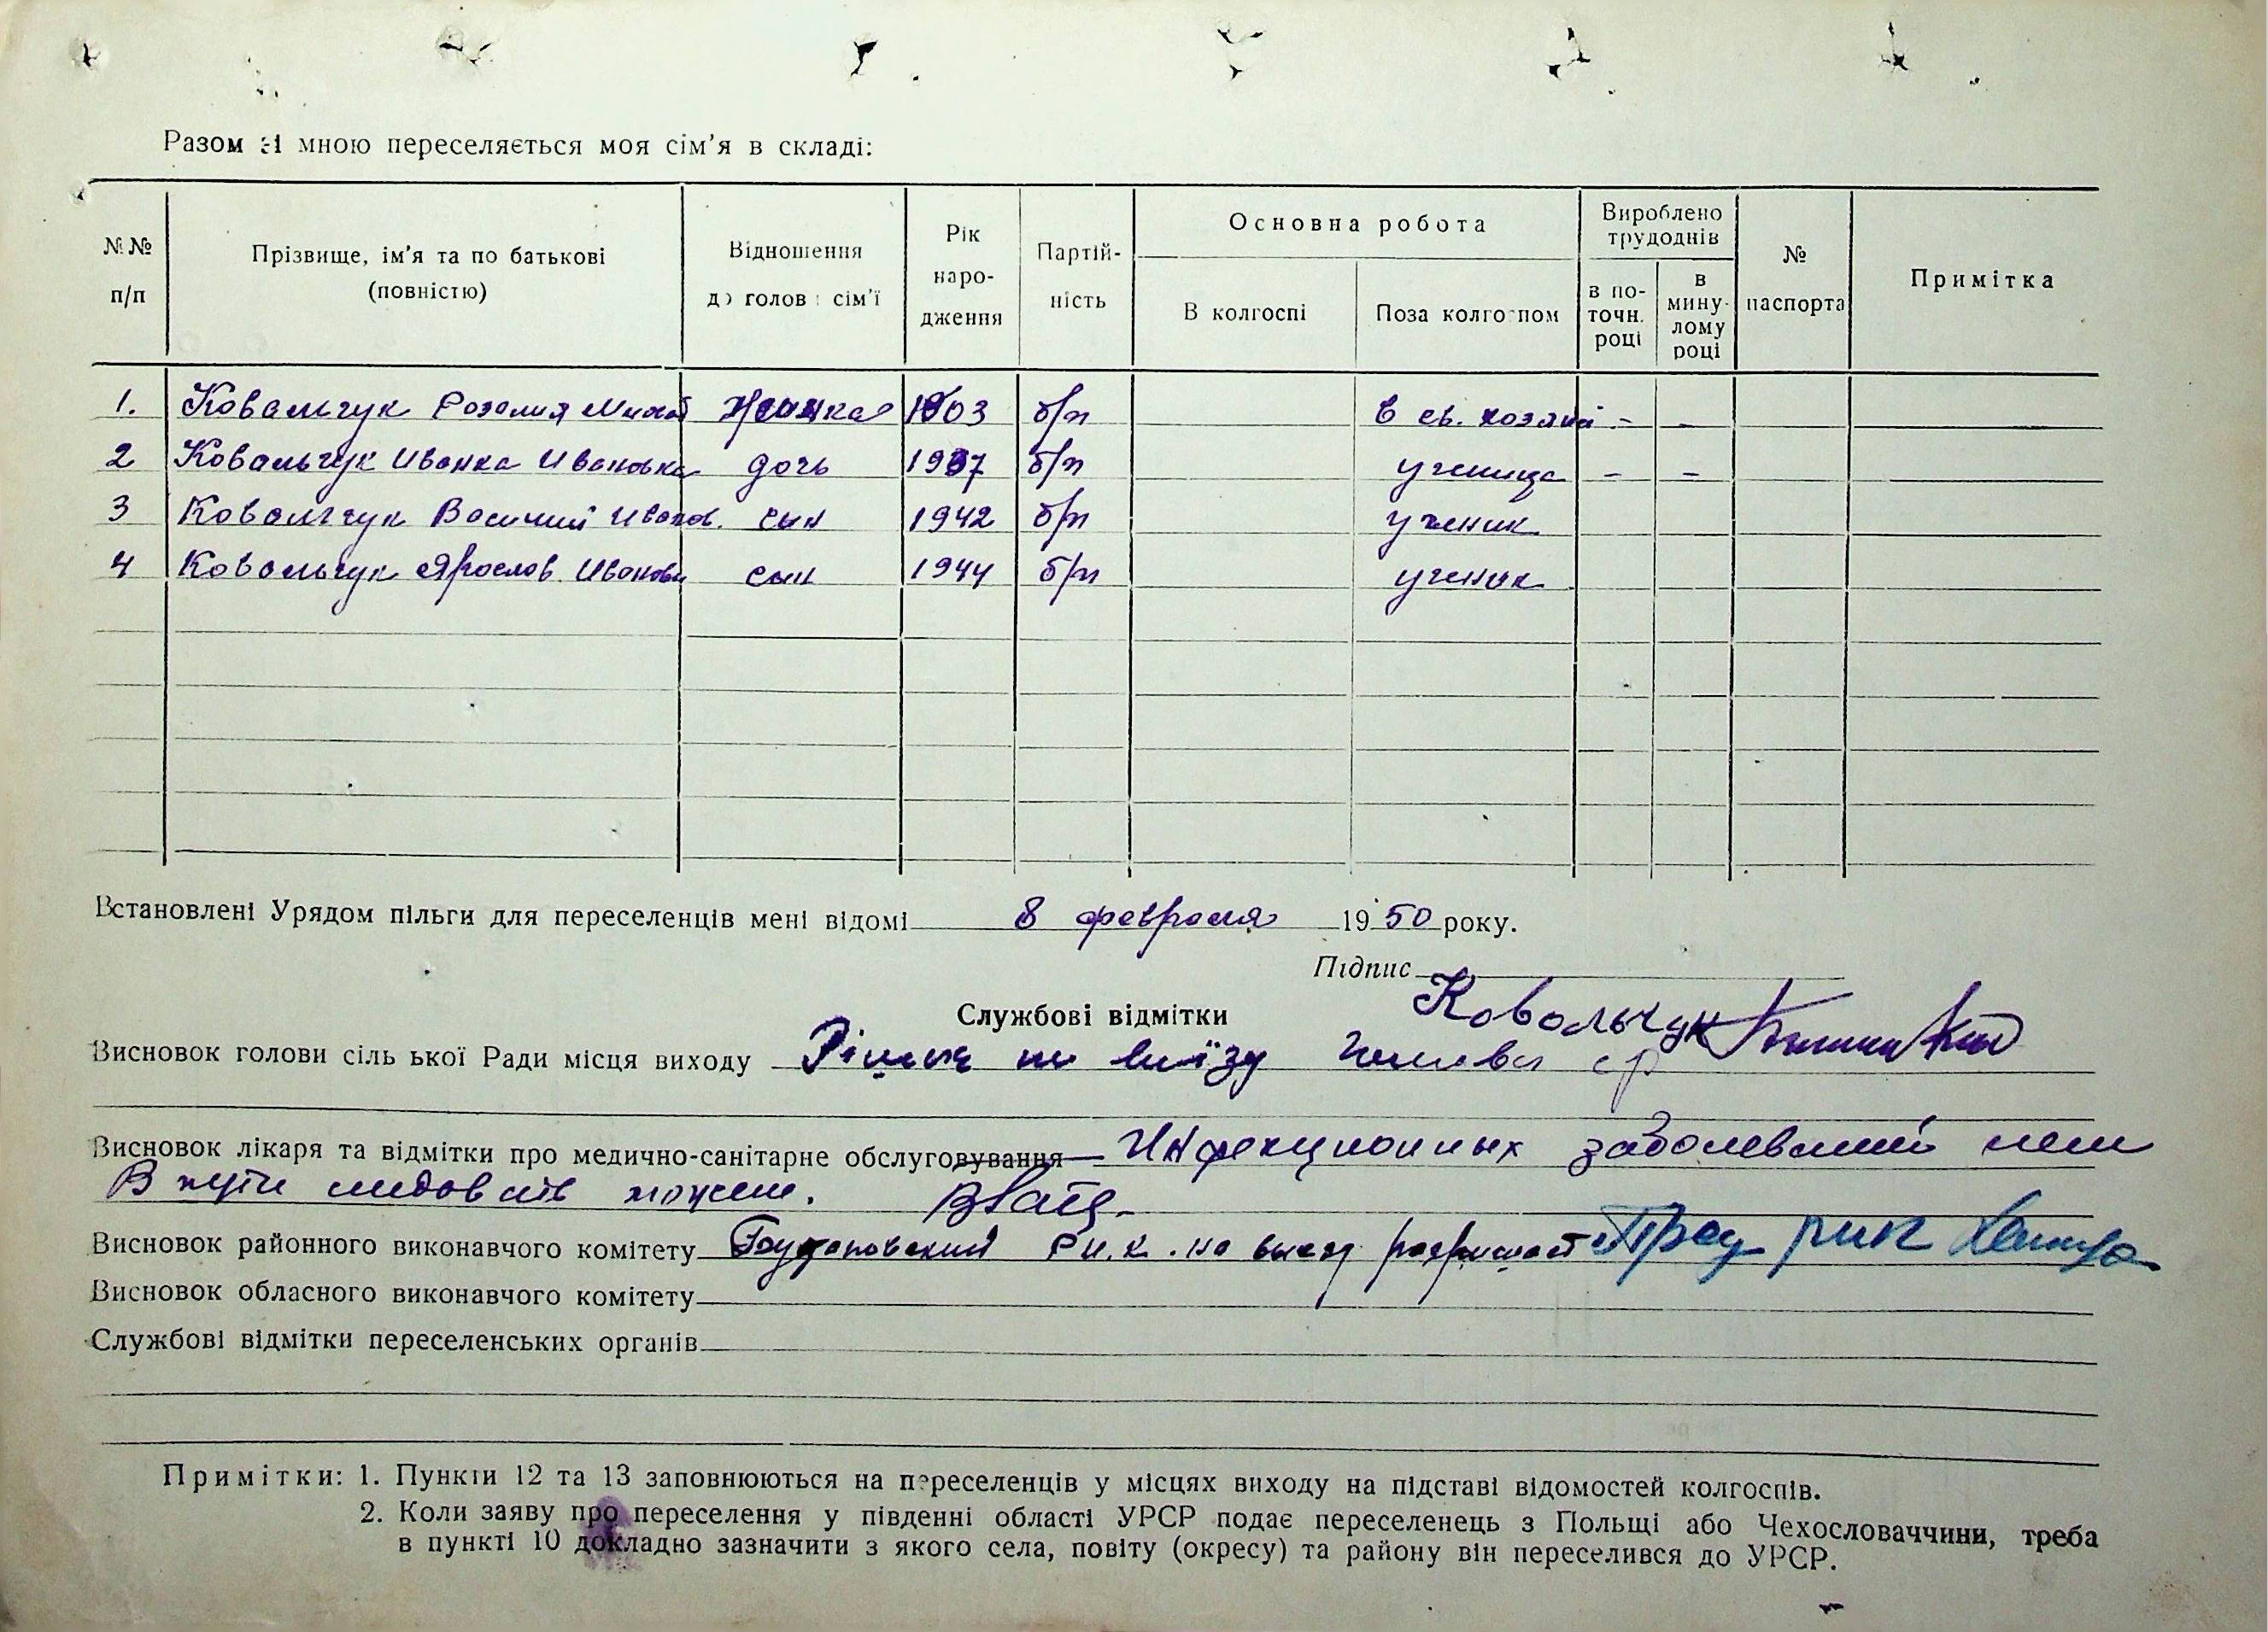 Разом зі мною переселяється моя сім'я в складі:
№№ п/п
Прізвище, ім'я та по батькові (повністю)
Відношення до голови сім'ї
Рік народження
Партійність
Основна робота
В колгоспі
Поза колгоспом
Вироблено трудоднів
в поточн. році
в минулому році
№ паспорта
Примітка
1. Ковальчук Розалия Михай жинка 1903 б/п в св. хозяй - -
2 Ковальчук Иванка Ивановна дочь 1937 б/п ученица - -
3 Ковальчук Василий Иванов. сын 1942 б/п ученик
4 Ковальчук Ярослав Иванови сын 1944 б/п ученик
Встановлені Урядом пільги для переселенців мені відомі 8 февраля 1950 року.
Підпис Ковальчук
Службові відмітки
Висновок голови сільської Ради місця виходу виїзду голова ср
Висновок лікаря та відмітки про медично-санітарне обслуговування Инфекционных заболеваний нет
В пути следовать может.
Висновок районного виконавчого комітету Р.и.к. на выезд разрешает Пред рик
Висновок обласного виконавчого комітету
Службові відмітки переселенських органів
Примітки: 1. Пункти 12 та 13 заповнюються на переселенців у місцях виходу на підставі відомостей колгоспів.
2. Коли заяву про переселення у південні області УРСР подає переселенець з Польщі або Чехословаччини, треба
в пункті 10 докладно зазначити з якого села, повіту (окресу) та району він переселився до УРСР.